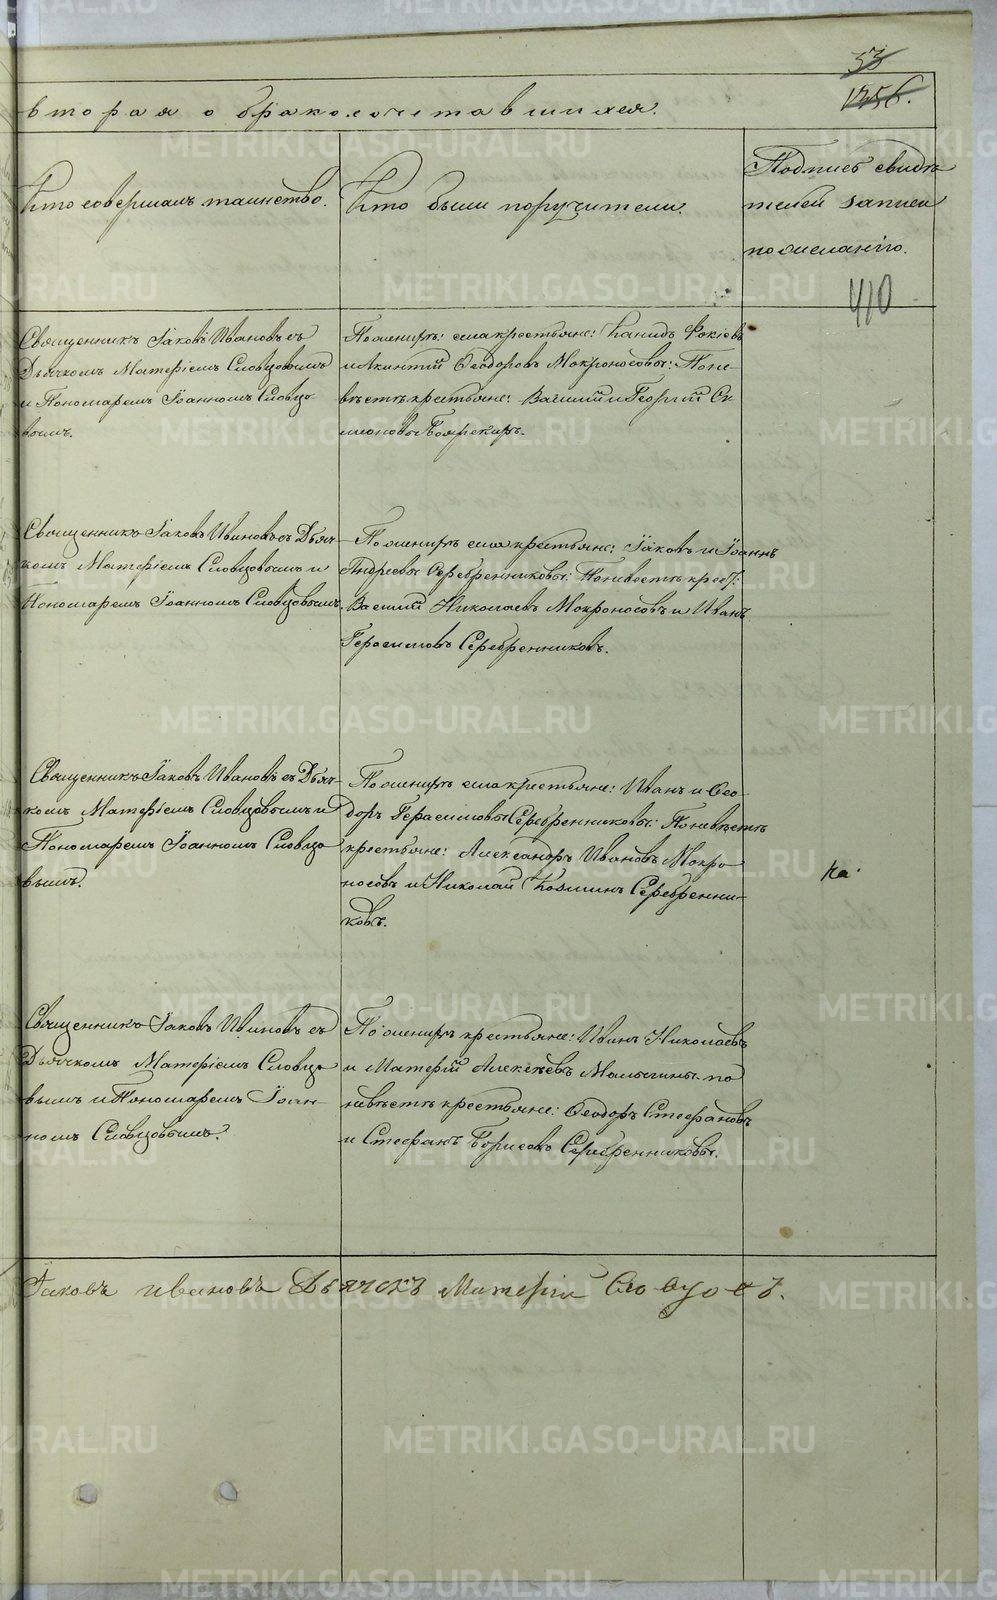 53
1256.
вторая о бракосочетавшихся.
Кто совершалъ таинство.
Кто были поручители.
Подпись свидѣ-
телей записи
по желанію.
410
Священникъ Іаковъ Ивановъ съ
Дьячкомъ Матѳіемъ Словцовымъ
и Пономаремъ Іоанномъ Словцо-
вымъ.
По женихѣ: села крестьяне: Фокіевъ
и Акинтій Ѳеодоровъ Мокроносовы: По не-
вѣстѣ крестьяне: Василій и Георгій Си-
меоновы
Священникъ Іаковъ Ивановъ съ Дьяч-
комъ Матѳіемъ Словцовымъ и
Пономаремъ Іоанномъ Словцовымъ.
По женихѣ села крестьяне: Іаковъ и Іоаннъ
Андреевы Серебренниковы: По невестѣ крест:
Василій Николаевъ Мокроносовъ и Иванъ
Герасимовъ Серебренниковъ.
Священникъ Іаковъ Ивановъ съ Дьяч-
комъ Матѳіемъ Словцовымъ и
Пономаремъ Іоанномъ Словцо-
вымъ.
По женихѣ села крестьяне: Иванъ и Ѳео-
доръ Герасимовы Серебренниковы: По невѣстѣ
крестьяне: Александръ Ивановъ Мокро-
носовъ и Николай Козминъ Серебренни-
ковъ.
Священникъ Іаковъ Ивановъ съ
Дьячкомъ Матѳіемъ Словцо-
вымъ и Пономаремъ Іоан-
номъ Словцовымъ.
По женихѣ крестьяне: Иванъ Николаевъ
и Матѳій Алексѣевъ Малыгины по
невѣстѣ крестьяне: Ѳеодоръ Стефановъ
и Стефанъ Борисовъ Серебренниковы.
Іаковъ Ивановъ Дьячокъ Матѳій Словцовъ.
METRIKI.GASO-URAL.RU